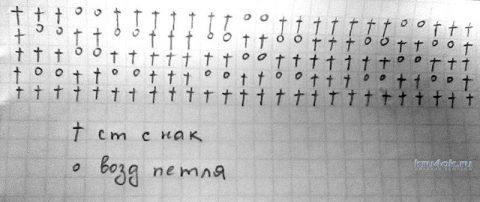 † ст с нак
о возд петля
kru4ok.ru